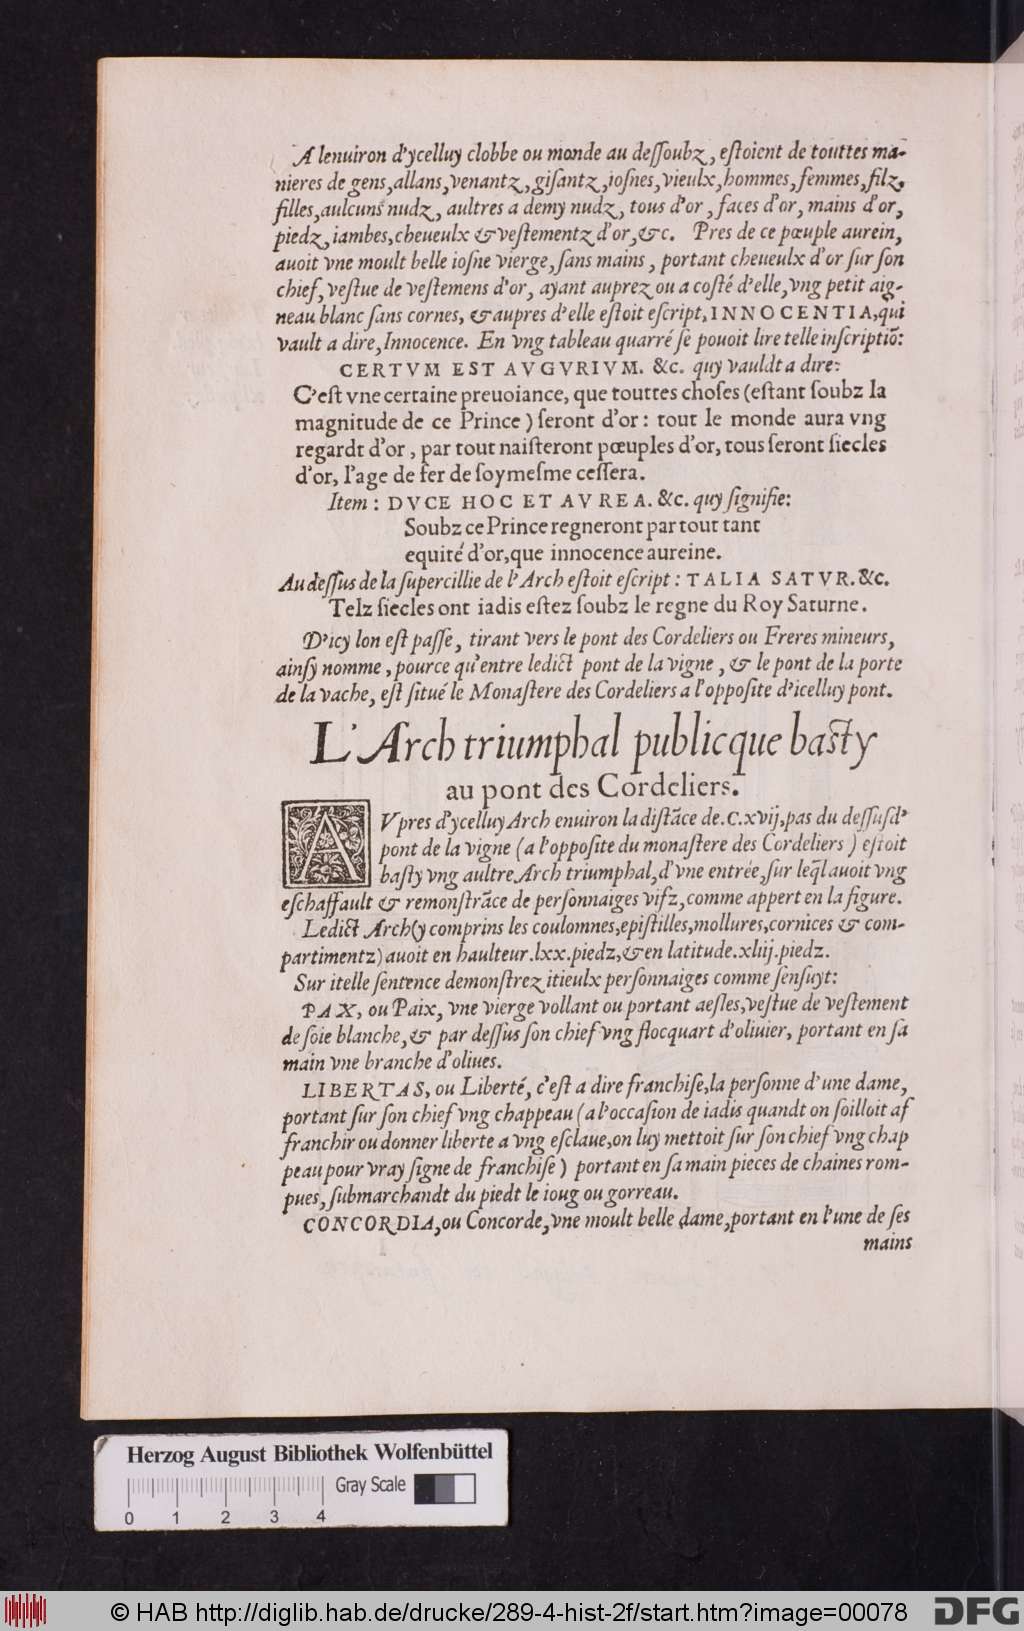 A lenuiron d'ycelluy clobbe ou monde au deſſoubz, eſtoient de touttes ma-
nieres de gens, allans, venantz, giſantz, ioſnes, vieulx, hommes, femmes, filz,
filles, aulcuns nudz, aultres a demy nudz, tous d'or, faces d'or, mains d'or,
piedz, iambes, cheueulx & veſtementz d'or, &c. Pres de ce pœuple aurein,
auoit vne moult belle ioſne vierge, ſans mains, portant cheueulx d'or ſur ſon
chief, veſtue de veſtemens d'or, ayant auprez ou a coſté d'elle, vng petit aig-
neau blanc ſans cornes, & aupres d'elle eſtoit eſcript, INNOCENTIA, qui
vault a dire, Innocence. En vng tableau quarré ſe pouoit lire telle inſcriptiō:
CERTVM EST AVGVRIVM. &c. quy vauldt a dire:
C'eſt vne certaine preuoiance, que touttes choſes (eſtant ſoubz la
magnitude de ce Prince) ſeront d'or: tout le monde aura vng
regardt d'or, par tout naiſteront pœuples d'or, tous ſeront ſiecles
d'or, l'age de fer de ſoymeſme ceſſera.
Item: DVCE HOC ET AVREA. &c. quy ſignifie:
Soubz ce Prince regneront par tout tant
equité d'or, que innocence aureine.
Au deſſus de la ſupercillie de l'Arch eſtoit eſcript: TALIA SATVR. &c.
Telz ſiecles ont iadis eſtez ſoubz le regne du Roy Saturne.
D'icy lon eſt paſſe, tirant vers le pont des Cordeliers ou Freres mineurs,
ainſy nomme, pource qu'entre ledict pont de la vigne, & le pont de la porte
de la vache, eſt ſitué le Monaſtere des Cordeliers a l'oppoſite d'icelluy pont.
L'Arch triumphal publicque baſty
au pont des Cordeliers.
AVpres d'ycelluy Arch enuiron la diſtāce de .C.xvij. pas du deſſuſd'
pont de la vigne (a l'oppoſite du monaſtere des Cordeliers) eſtoit
baſty vng aultre Arch triumphal, d'vne entrée, ſur leq̄l auoit vng
eſchaffault & remonſtrāce de perſonnaiges vifz, comme appert en la figure.
Ledict Arch (y comprins les coulomnes, epiſtilles, mollures, cornices & com-
partimentz) auoit en haulteur .lxx. piedz, & en latitude .xliij. piedz.
Sur itelle ſentence demonſtrez itieulx perſonnaiges comme ſenſuyt:
PAX, ou Paix, vne vierge vollant ou portant aeſles, veſtue de veſtement
de ſoie blanche, & par deſſus ſon chief vng flocquart d'oliuier, portant en ſa
main vne branche d'oliues.
LIBERTAS, ou Liberté, c'eſt a dire franchiſe, la perſonne d'une dame,
portant ſur ſon chief vng chappeau (a l'occaſion de iadis quandt on ſoilloit af
franchir ou donner liberte a vng eſclaue, on luy mettoit ſur ſon chief vng chap
peau pour vray ſigne de franchiſe) portant en ſa main pieces de chaines rom-
pues, ſubmarchandt du piedt le ioug ou gorreau.
CONCORDIA, ou Concorde, vne moult belle dame, portant en l'une de ſes
mains
Herzog August Bibliothek Wolfenbüttel
Gray Scale
0 1 2 3 4
© HAB http://diglib.hab.de/drucke/289-4-hist-2f/start.htm?image=00078
DFG